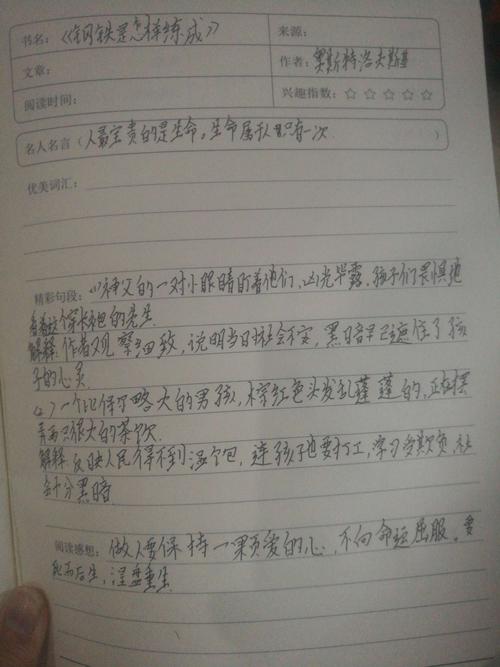 书名：《钢铁是怎样练成》
来源：
文章：
作者：奥斯特洛夫斯基
阅读时间：
兴趣指数：☆ ☆ ☆ ☆ ☆
名人名言（人最宝贵的是生命。生命属于人只有一次）
优美词汇：
精彩句段：(1)神父的一对小眼睛盯着他们，凶光毕露。孩子们畏惧地
看着这个穿长袍的先生
解释：作者观察细致，说明当时社会不安，黑暗早已遮住了孩
子的心灵
(2)一个比保尔略大的男孩，棕红色头发乱蓬蓬的，正在摆
弄两只很大的茶炊
解释 反映人民得不到温饱，连孩子也要打工，学习
会十分黑暗
阅读感想：做人要保持一颗爱的心，不向命运屈服，要
死而后生，涅盘重生